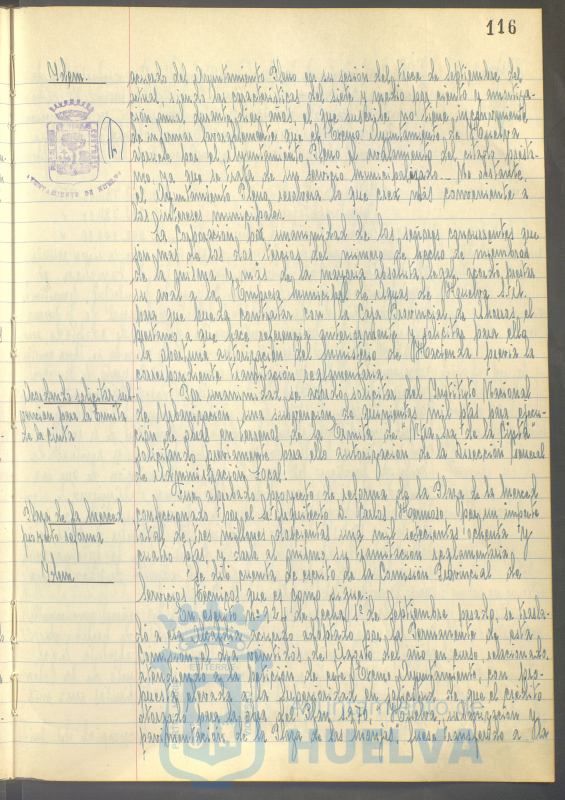 116
Idem.
acuerdo del Ayuntamiento Pleno en su sesión del trece de Septiembre del
actual, siendo las características del siete y medio por ciento y amortiza-
ción anual durante diez años, el que suscribe no tiene inconveniente
de informar favorablemente que el Excmo Ayuntamiento de Huelva
acuerde por el Ayuntamiento Pleno el avalamiento del citado présta-
mo ya que se trata de un servicio municipalizado. No obstante,
el Ayuntamiento Pleno resolverá lo que crea más conveniente a
los intereses municipales.
La Corporación por unanimidad de los señores concurrentes que
forman más de los dos tercios del número de hecho de miembros
de la misma y más de la mayoría absoluta legal, acordó prestar
su aval a la Empresa municipal de Aguas de Huelva S.A.
para que pueda contratar con la Caja Provincial de Ahorros, el
préstamo a que hace referencia anteriormente y solicitar para ello
la oportuna autorización del Ministerio de Hacienda previa la
correspondiente tramitación reglamentaria.
Acordando solicitar sub-
vención para la Ermita
de la Cinta
Por unanimidad se acordó solicitar del Instituto Nacional
de Urbanización una subvención de quinientas mil ptas para ejecu-
ción de obras en terrenos de la Ermita de "Ntra. Sra. de la Cinta"
solicitando previamente para ello autorización de la Dirección General
de Administración Local.
Plaza de la Merced
proyecto reforma
Fué aprobado proyecto de reforma de la Plaza de la Merced
confeccionado por el Sr Arquitecto D. Carlos Hermoso Op. en un importe
total de tres millones doscientas una mil setecientas ochenta y
cuatro ptas, y darle al mismo su tramitación reglamentaria.
Idem
Se dió cuenta de escrito de la Comisión Provincial de
Servicios Técnicos que es como sigue:
En escrito nº 927 de fecha 1º de Septiembre pasado, se trasla-
dó a esa Alcaldía acuerdo adoptado por la Permanente de esta
Comisión el día veintidós de Agosto del año en curso relacionado
atendiendo a la petición de este Excmo Ayuntamiento, con pro-
puesta elevada a la Superioridad en solicitud de que el crédito
otorgado para la obra del Plan 1970, "Huelva, urbanización y
pavimentación de la Plaza de las Monjas, fuese transferido a la
AYUNTAMIENTO DE HUELVA
Ayuntamiento de
HUELVA